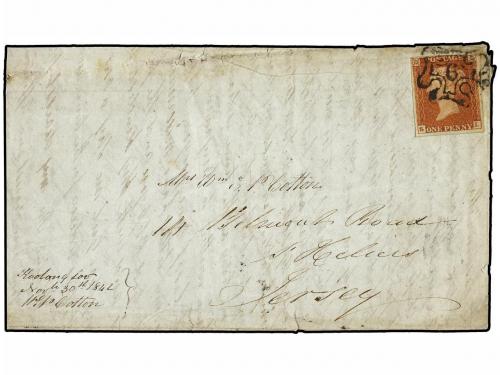 POSTAGE
ONE PENNY
Mrs Wm J. P. Cotton
Belmont Road
St Heliers
Jersey
Koolangsoo
Novr 30th 1842
Wm Cotton